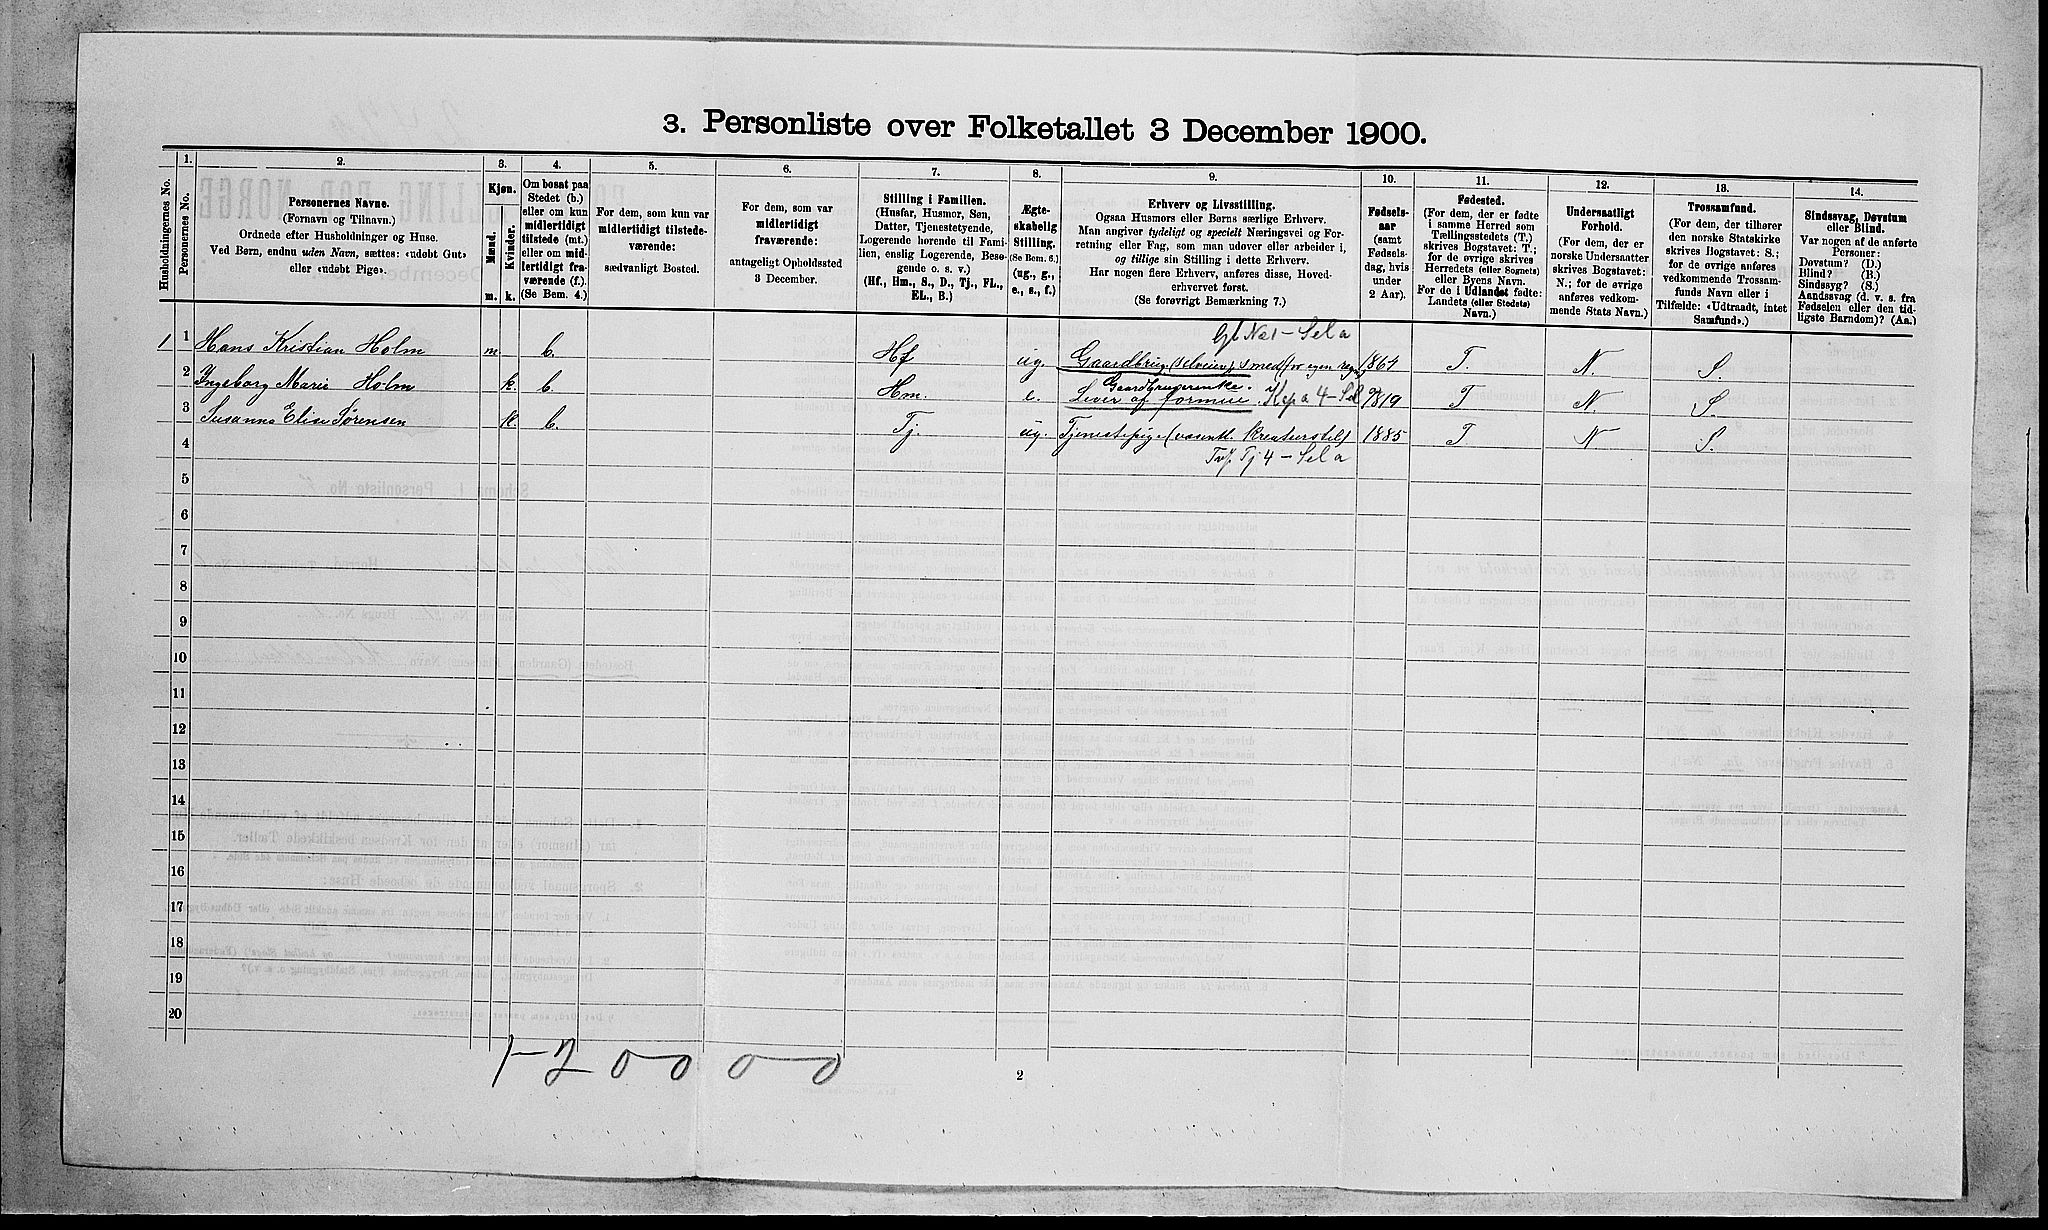 3. Personliste over Folketallet 3 December 1900.
Husholdningernes No.
1. Personernes No.
2. Personernes Navne. (Fornavn og Tilnavn.) Ordnede efter Husholdninger og Huse. Ved Børn, endnu uden Navn, sættes: «udøbt Gut» eller «udøbt Pige».
3. Kjøn. Mænd. m. Kvinder. k.
4. Om bosat paa Stedet (b.) eller om kun midlertidigt tilstede (mt.) eller om midlertidigt fraværende (f.). (Se Bem. 4.)
5. For dem, som kun var midlertidigt tilstedeværende: sædvanligt Bosted.
6. For dem, som var midlertidigt fraværende: antageligt Opholdssted 3 December.
7. Stilling i Familien. (Husfar, Husmor, Søn, Datter, Tjenestetyende, Logerende hørende til Familien, enslig Logerende, Besøgende o. s. v.) (Hf., Hm., S., D., Tj., FL., EL., B.)
8. Ægteskabelig Stilling. (Se Bem. 6.) (ug., g., e., s., f.)
9. Erhverv og Livsstilling. Ogsaa Husmors eller Børns særlige Erhverv. Man angiver tydeligt og specielt Næringsvei og Forretning eller Fag, som man udøver eller arbeider i, og tillige sin Stilling i dette Erhverv. Har nogen flere Erhverv, anføres disse, Hovederhvervet først. (Se forøvrigt Bemærkning 7.)
10. Fødselsaar (samt Fødselsdag, hvis under 2 Aar).
11. Fødested. (For dem, der er fødte i samme Herred som Tællingsstedets (T.) skrives Bogstavet: T.; for de øvrige skrives Herredets (eller Sognets) eller Byens Navn. For de i Udlandet fødte: Landets (eller Stedets) Navn.)
12. Undersaatligt Forhold. (For dem, der er norske Undersaatter skrives Bogstavet: N.; for de øvrige anføres vedkommende Stats Navn.)
13. Trossamfund. (For dem, der tilhører den norske Statskirke skrives Bogstavet: S.; for de øvrige anføres vedkommende Trossamfunds Navn eller i Tilfælde: «Udtraadt, intet Samfund».)
14. Sindssvag, Døvstum eller Blind. Var nogen af de anførte Personer: Døvstum? (D.) Blind? (B.) Sindssyg? (S.) Aandssvag (d. v. s. fra Fødselen eller den tidligste Barndom)? (Aa.)
Sel a
1 1 Hans Kristian Holm m. b. Hf ug. Gaardbrug. (selveier), smed (for egen regn.) 1864 T. N. S.
Gaardbrugerenke.
2 Ingeborg Marie Holm k. b. Hm. e. Lever af formue. Kap a 4 - Sel 1819 T N S.
3 Susanna Elise Sørensen k. b. Tj. ug. Tjenestepige (væsentl. kreaturstel) 1885 T N S.
Tj 4 - Sel a
4
5
6
7
8
9
10
11
12
13
14
15
16
17
18
19
20
1-2 0 0 0 0
2